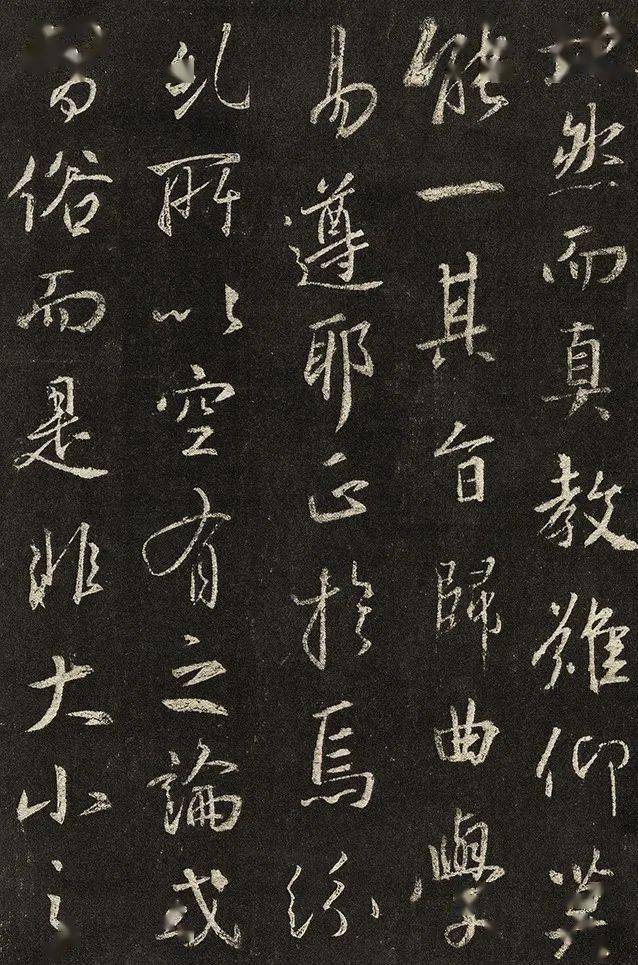 然而真教難仰莫
能一其旨歸曲學
易遵耶正於焉紛
糺所以空有之論或
習俗而是非大小之